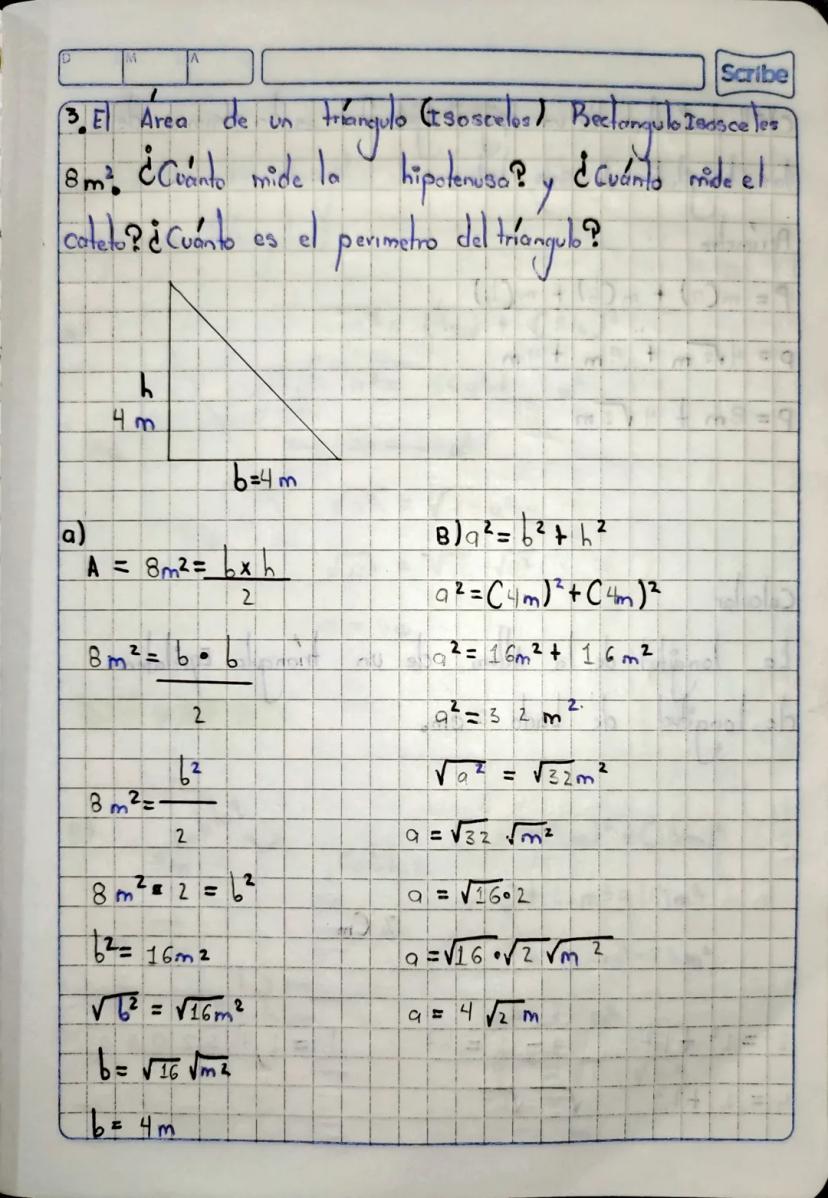 D M A
Scribe
3. El Área de un triángulo (Isosceles) Rectangulo Isosceles
8m². ¿Cuánto mide la hipotenusa? y ¿Cuánto mide el
cateto? ¿Cuánto es el perimetro del triángulo?
h
4 m
b=4m
a)
A = 8m² = b x h / 2
8m² = b • b / 2
8m² = b² / 2
8m² • 2 = b²
b² = 16m²
√b² = √16m²
b = √16 √m²
b = 4m
B) a² = b² + h²
a² = (4m)² + (4m)²
a² = 16m² + 16m²
a² = 32 m²
√a² = √32m²
a = √32 √m²
a = √16•2
a = √16 • √2 √m²
a = 4 √2 m